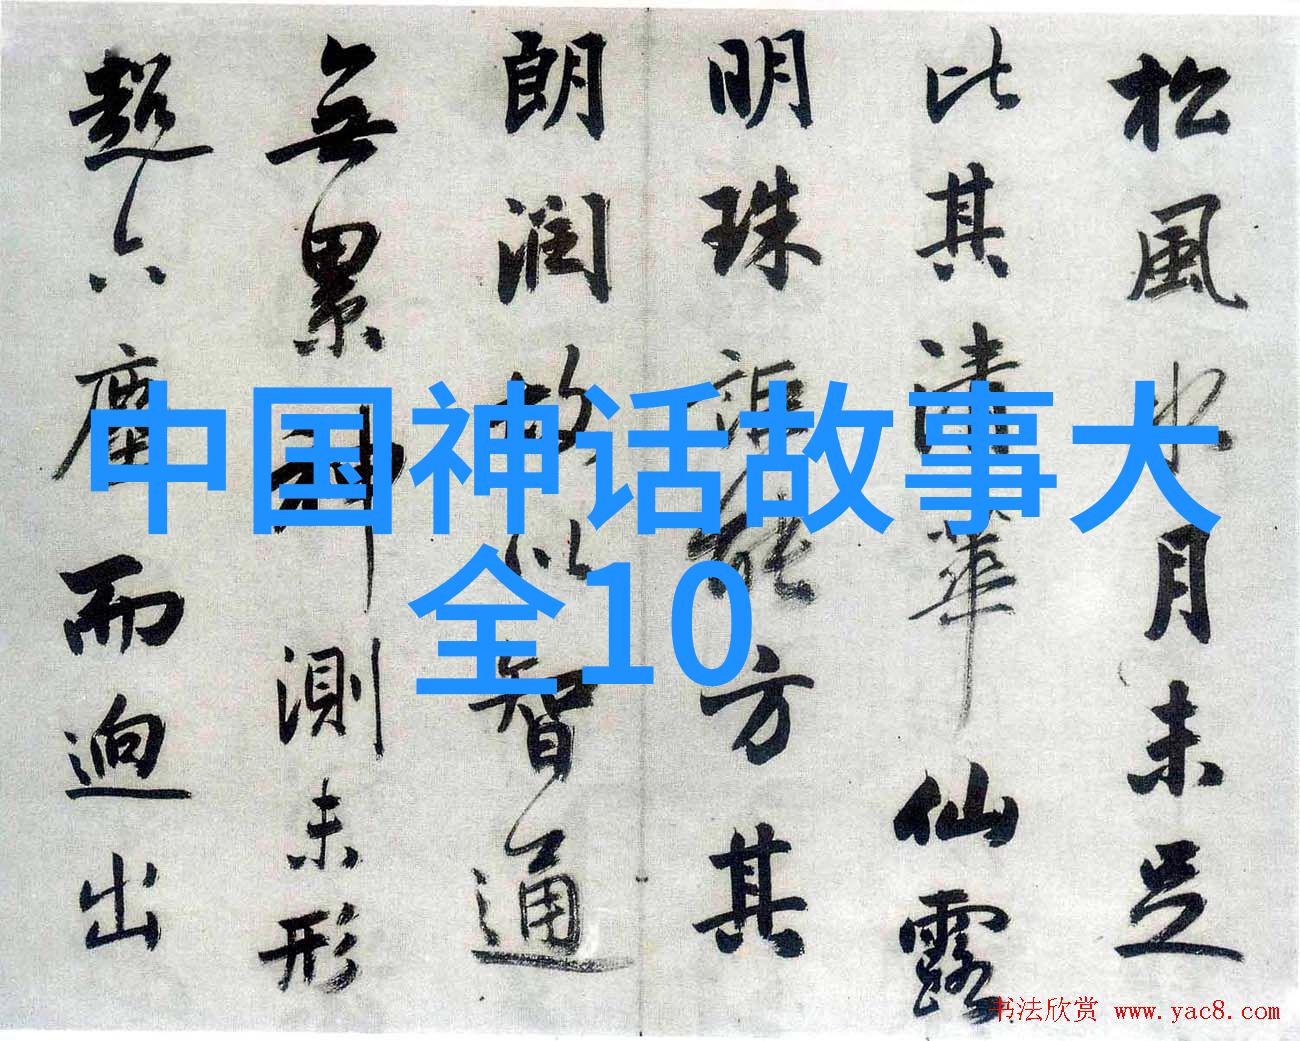 松風水月未足
比其清華仙露
明珠詎能方其
朗潤故以智通
無累神測未形
超六塵而迥出
中国神话故事大
全10
书法欣赏 www.yac8.com